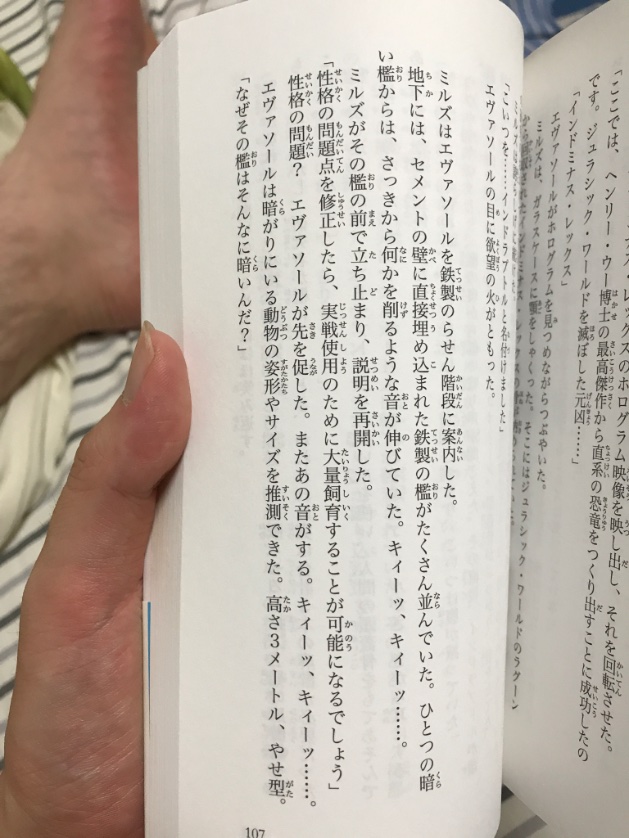 レックスのホログラム映像を映し出し、それを回転させた。
「ここでは、ヘンリー・ウー博士の最高傑作から直系の恐竜をつくり出すことに成功したの
です。ジュラシック・ワールドを滅ぼした元凶……」
「インドミナス・レックス」
エヴァソールがホログラムを見つめながらつぶやいた。
ミルズは、ガラスケースに顎をしゃくった。そこにはジュラシック・ワールドのラグーン
「こいつを……インドラプトルと名付けました」
エヴァソールの目に欲望の火がともった。
ミルズはエヴァソールを鉄製のらせん階段に案内した。
地下には、セメントの壁に直接埋め込まれた鉄製の檻がたくさん並んでいた。ひとつの暗
い檻からは、さっきから何かを削るような音が伸びていた。キィーッ、キィーッ……。
ミルズがその檻の前で立ち止まり、説明を再開した。
「性格の問題点を修正したら、実戦使用のために大量飼育することが可能になるでしょう」
性格の問題? エヴァソールが先を促した。またあの音がする。キィーッ、キィーッ……。
エヴァソールは暗がりにいる動物の姿形やサイズを推測できた。高さ3メートル、やせ型。
「なぜその檻はそんなに暗いんだ?」
107